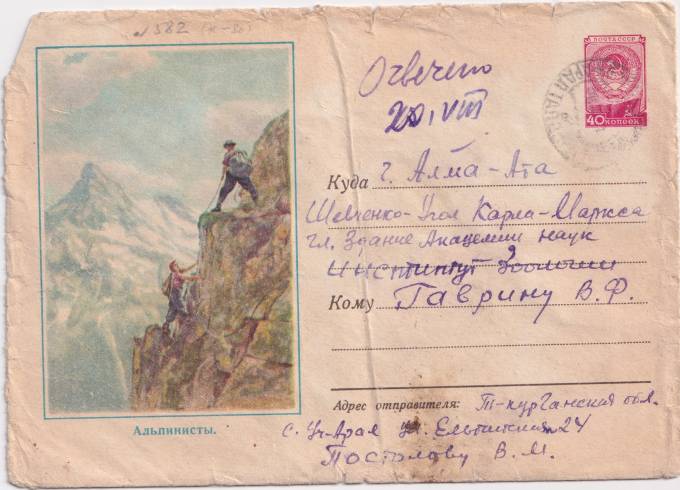 №582 (К-80)
Отвечено
20.VIII
ПОЧТА СССР
40 КОПЕЕК
Куда г. Алма-Ата
Шевченко-Угол Карла-Маркса
гл. Здание Академии наук
Институт Зоологии
Кому Гаврину В.Ф.
Адрес отправителя: Т-Курганская обл.
с. Уч-Арал ул. 24
Постолову В.М.
Альпинисты.